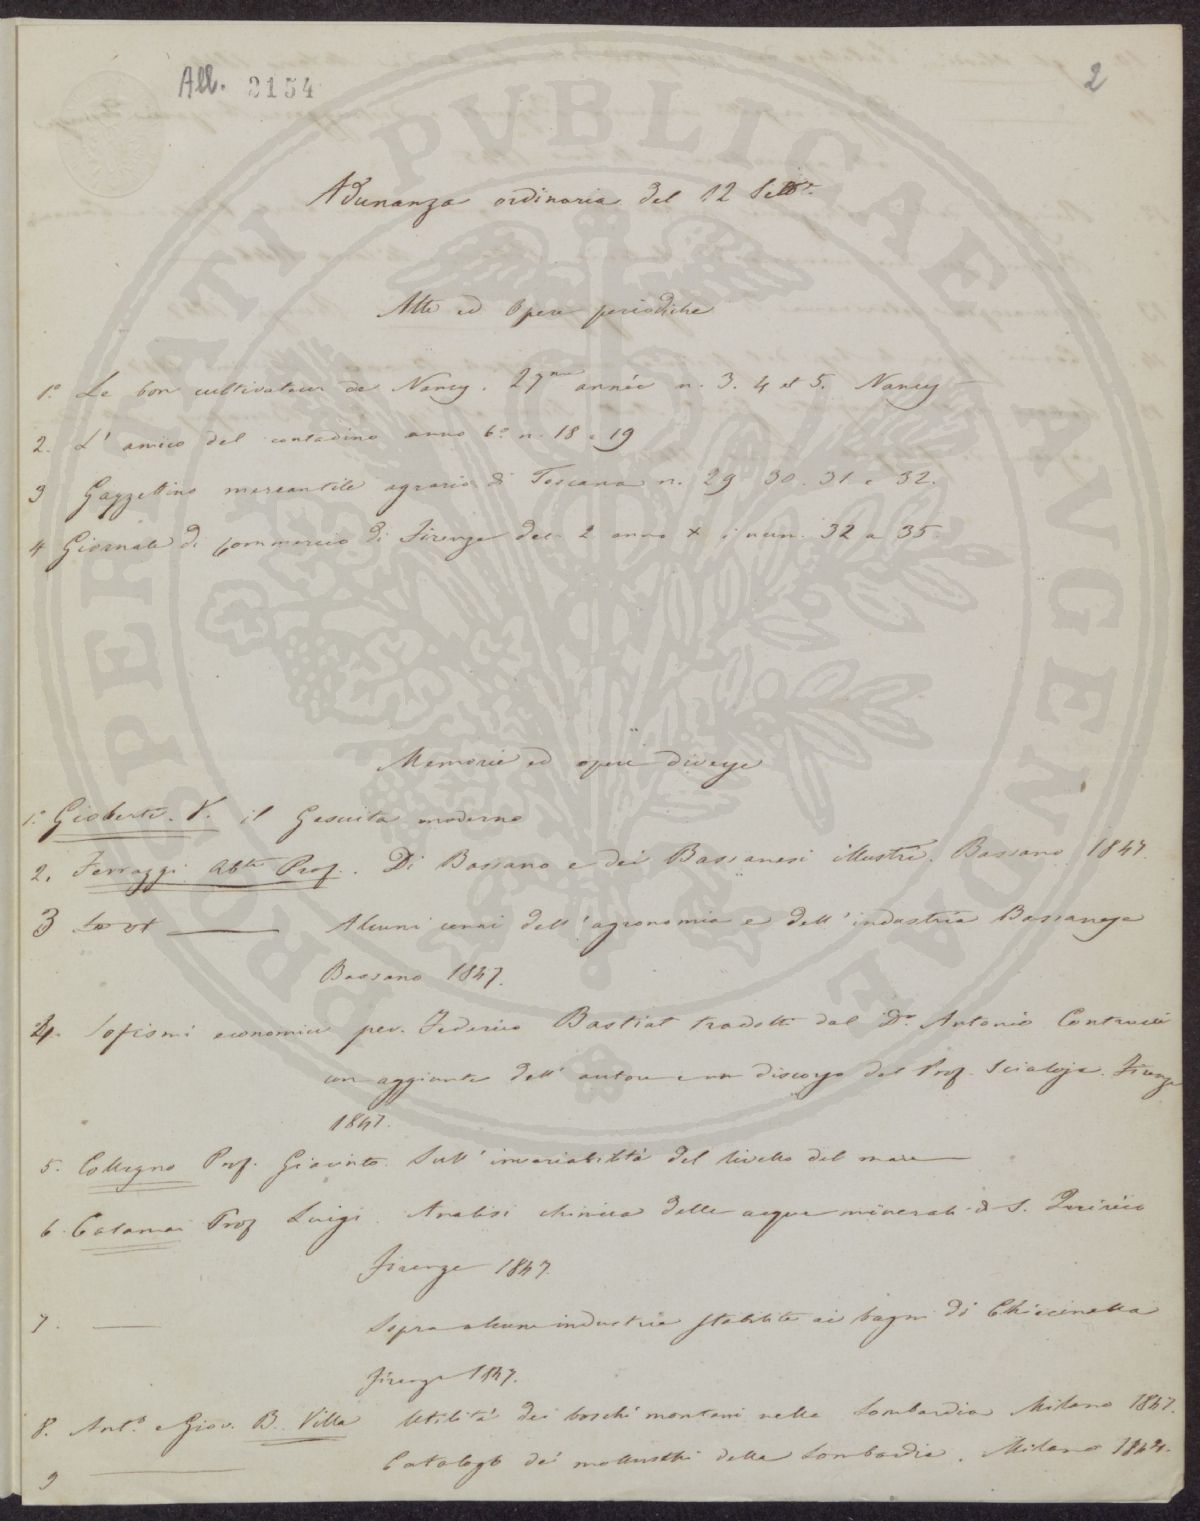 All. 2154
2
Adunanza ordinaria del 12 Settbr.
Atti ed Opere periodiche
1.° Le bon cultivateur de Nancy. 27me année n. 3. 4 et 5. Nancy
2. L'amico del contadino anno 6.° n. 18 e 19
3 Gazzettino mercantile agrario di Toscana n. 29 30. 31 e 32.
4 Giornale di Commercio di Firenze del 2 anno X i num. 32 a 35
Memorie ed opere diverse
1.° Gioberti. V. il Gesuita moderno
2. Ferrazzi Abte Prof. Di Bassano e dei Bassanesi illustri. Bassano 1847.
3 Alcuni cenni dell'agronomia e dell'industria Bassanese
Bassano 1847.
4. Sofismi economici per Federico Bastiat tradotti dal Dr. Antonio Contrucci
con aggiunte dell'autore e un discorso del Prof. Scialoja. Firenze
1847.
5. Collegno Prof. Giacinto. Sull'invariabilità del livello del mare
6. Calamai Prof Luigi. Analisi chimica delle acque minerali di S. Quirico
Firenze 1847.
7. Sopra alcune industrie stabilite ai bagni di Chiecinella
Firenze 1847.
8. Ant.° e Giov. B. Villa Utilità dei boschi montani nella Lombardia Milano 1847.
9 Catalogo dei molluschi della Lombardia. Milano